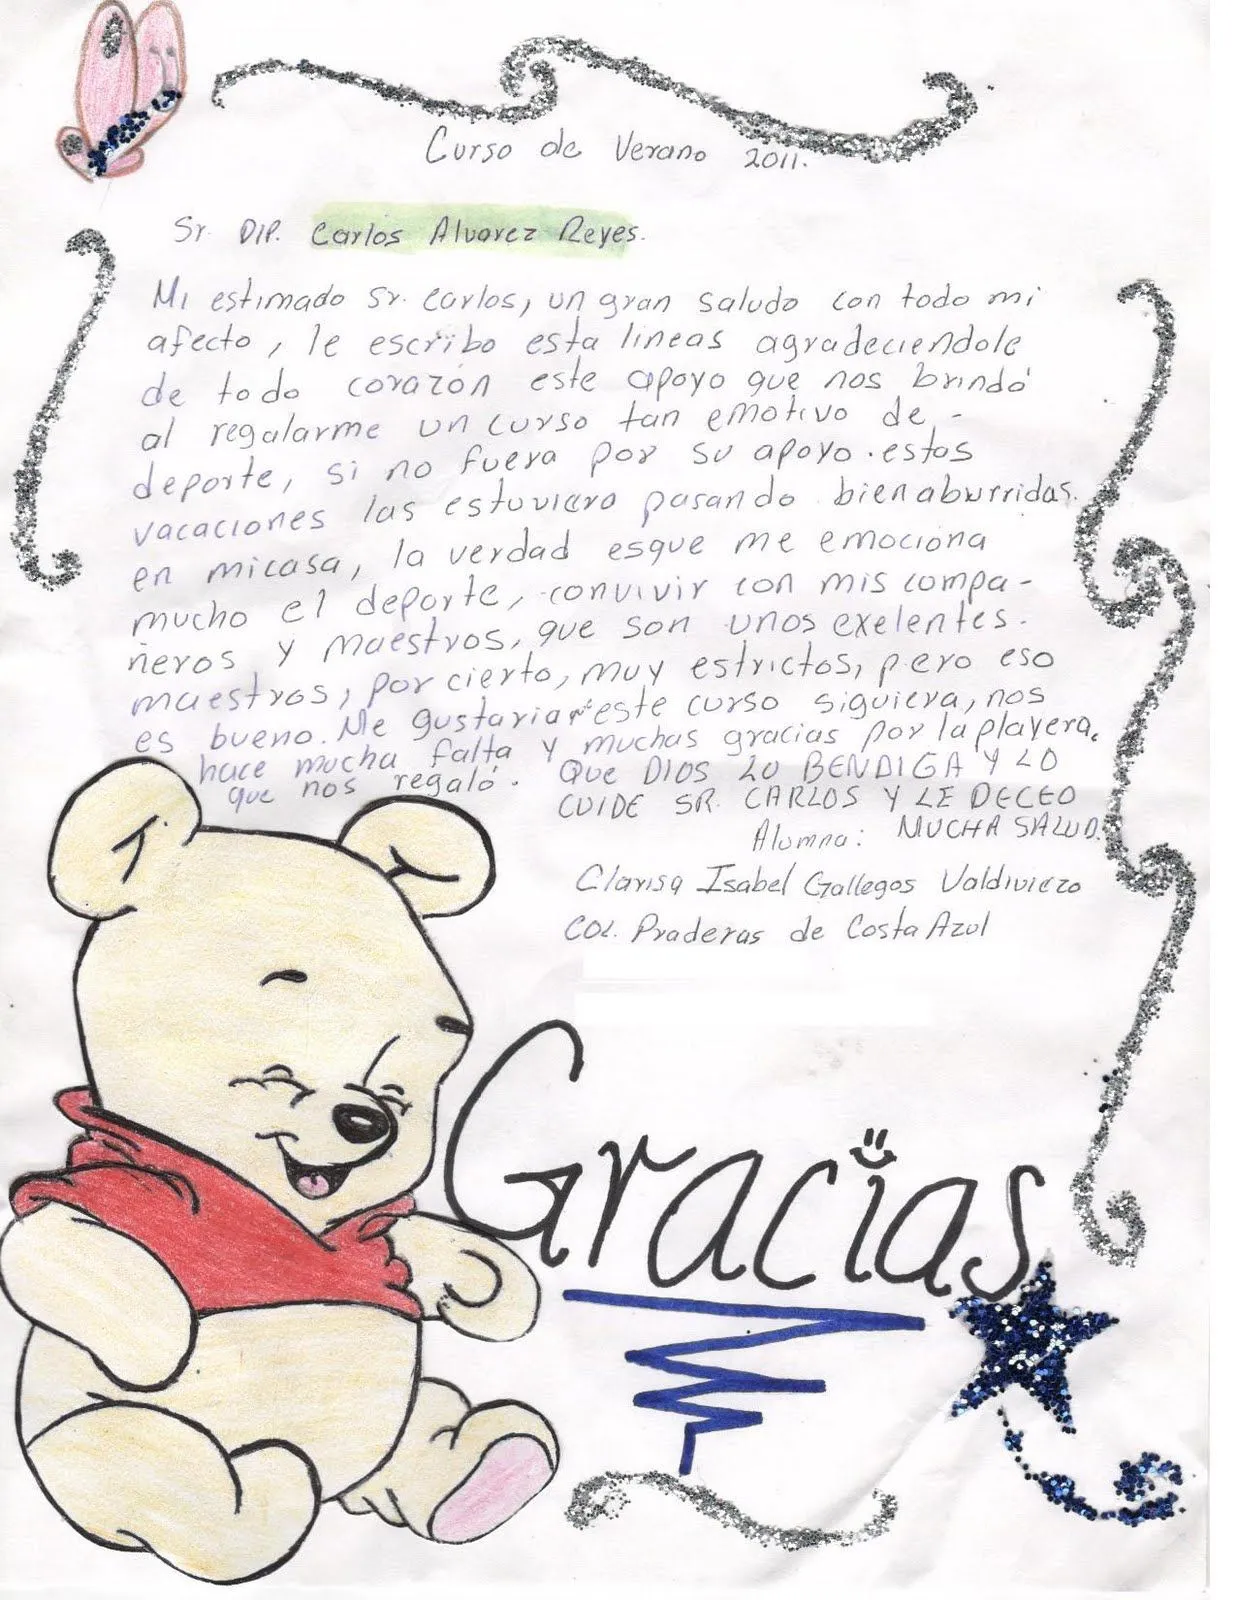 Curso de Verano 2011.
Sr. DIP. Carlos Alvarez Reyes.
Mi estimado Sr. Carlos, un gran saludo con todo mi
afecto, le escribo esta lineas agradeciendole
de todo corazón este apoyo que nos brindó
al regalarme un curso tan emotivo de -
deporte, si no fuera por su apoyo. estas
vacaciones las estuviera pasando bien aburridas.
en micasa, la verdad esque me emociona
mucho el deporte, convivir con mis compa-
ñeros y maestros, que son unos exelentes.
maestros, por cierto, muy estrictos, pero eso
es bueno. Me gustaria este curso siguiera, nos
hace mucha falta y muchas gracias por la playera.
que nos regaló. QUE DIOS LO BENDIGA Y LO
CUIDE SR. CARLOS Y LE DECEO
MUCHA SALUD.
Alumna:
Clarisa Isabel Gallegos Valdiviezo
COL. Praderas de Costa Azul
Gracias